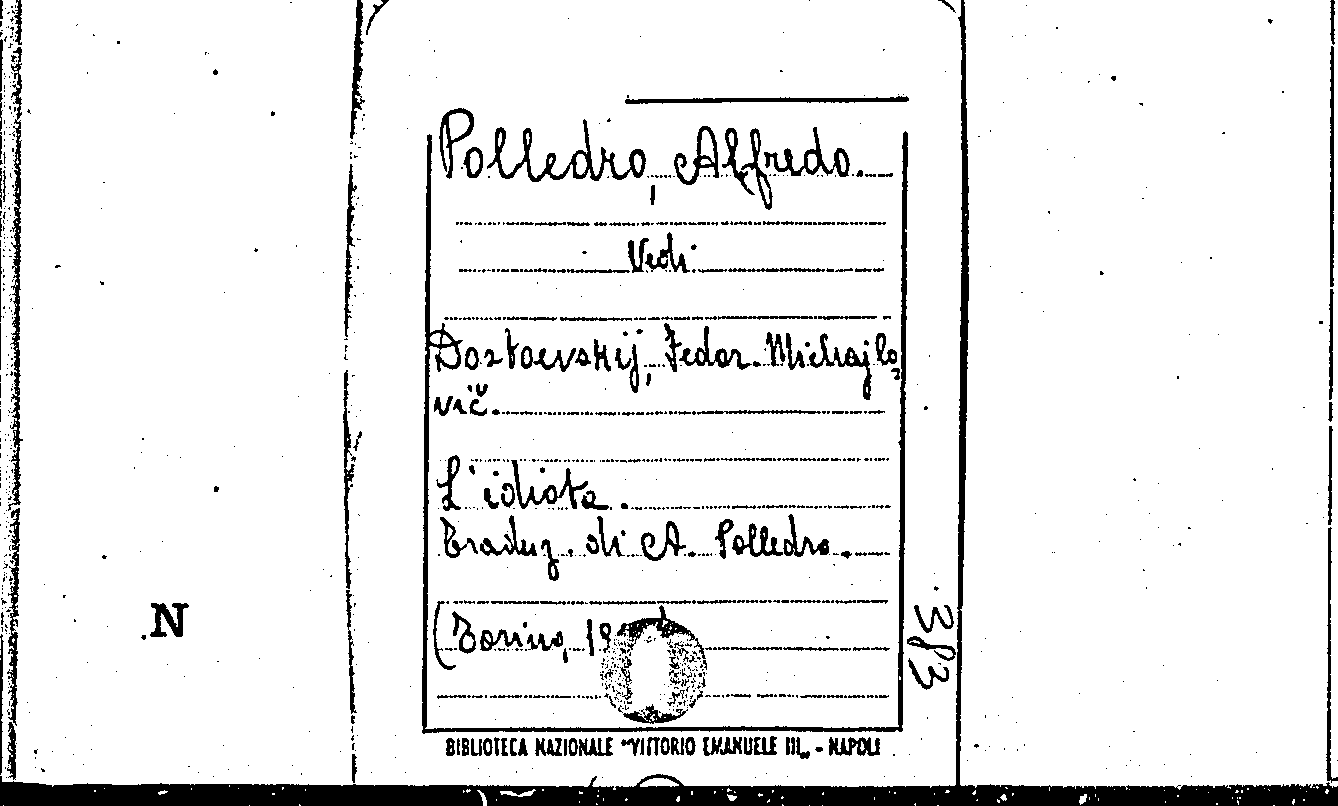 Polledro, Alfredo.
Vedi
Dostoevskij, Fedor Michajlo-
vič.
L'idiota.
Traduz. di A. Polledro.
(Torino,
383
N
BIBLIOTECA NAZIONALE "VITTORIO EMANUELE III„ - NAPOLI